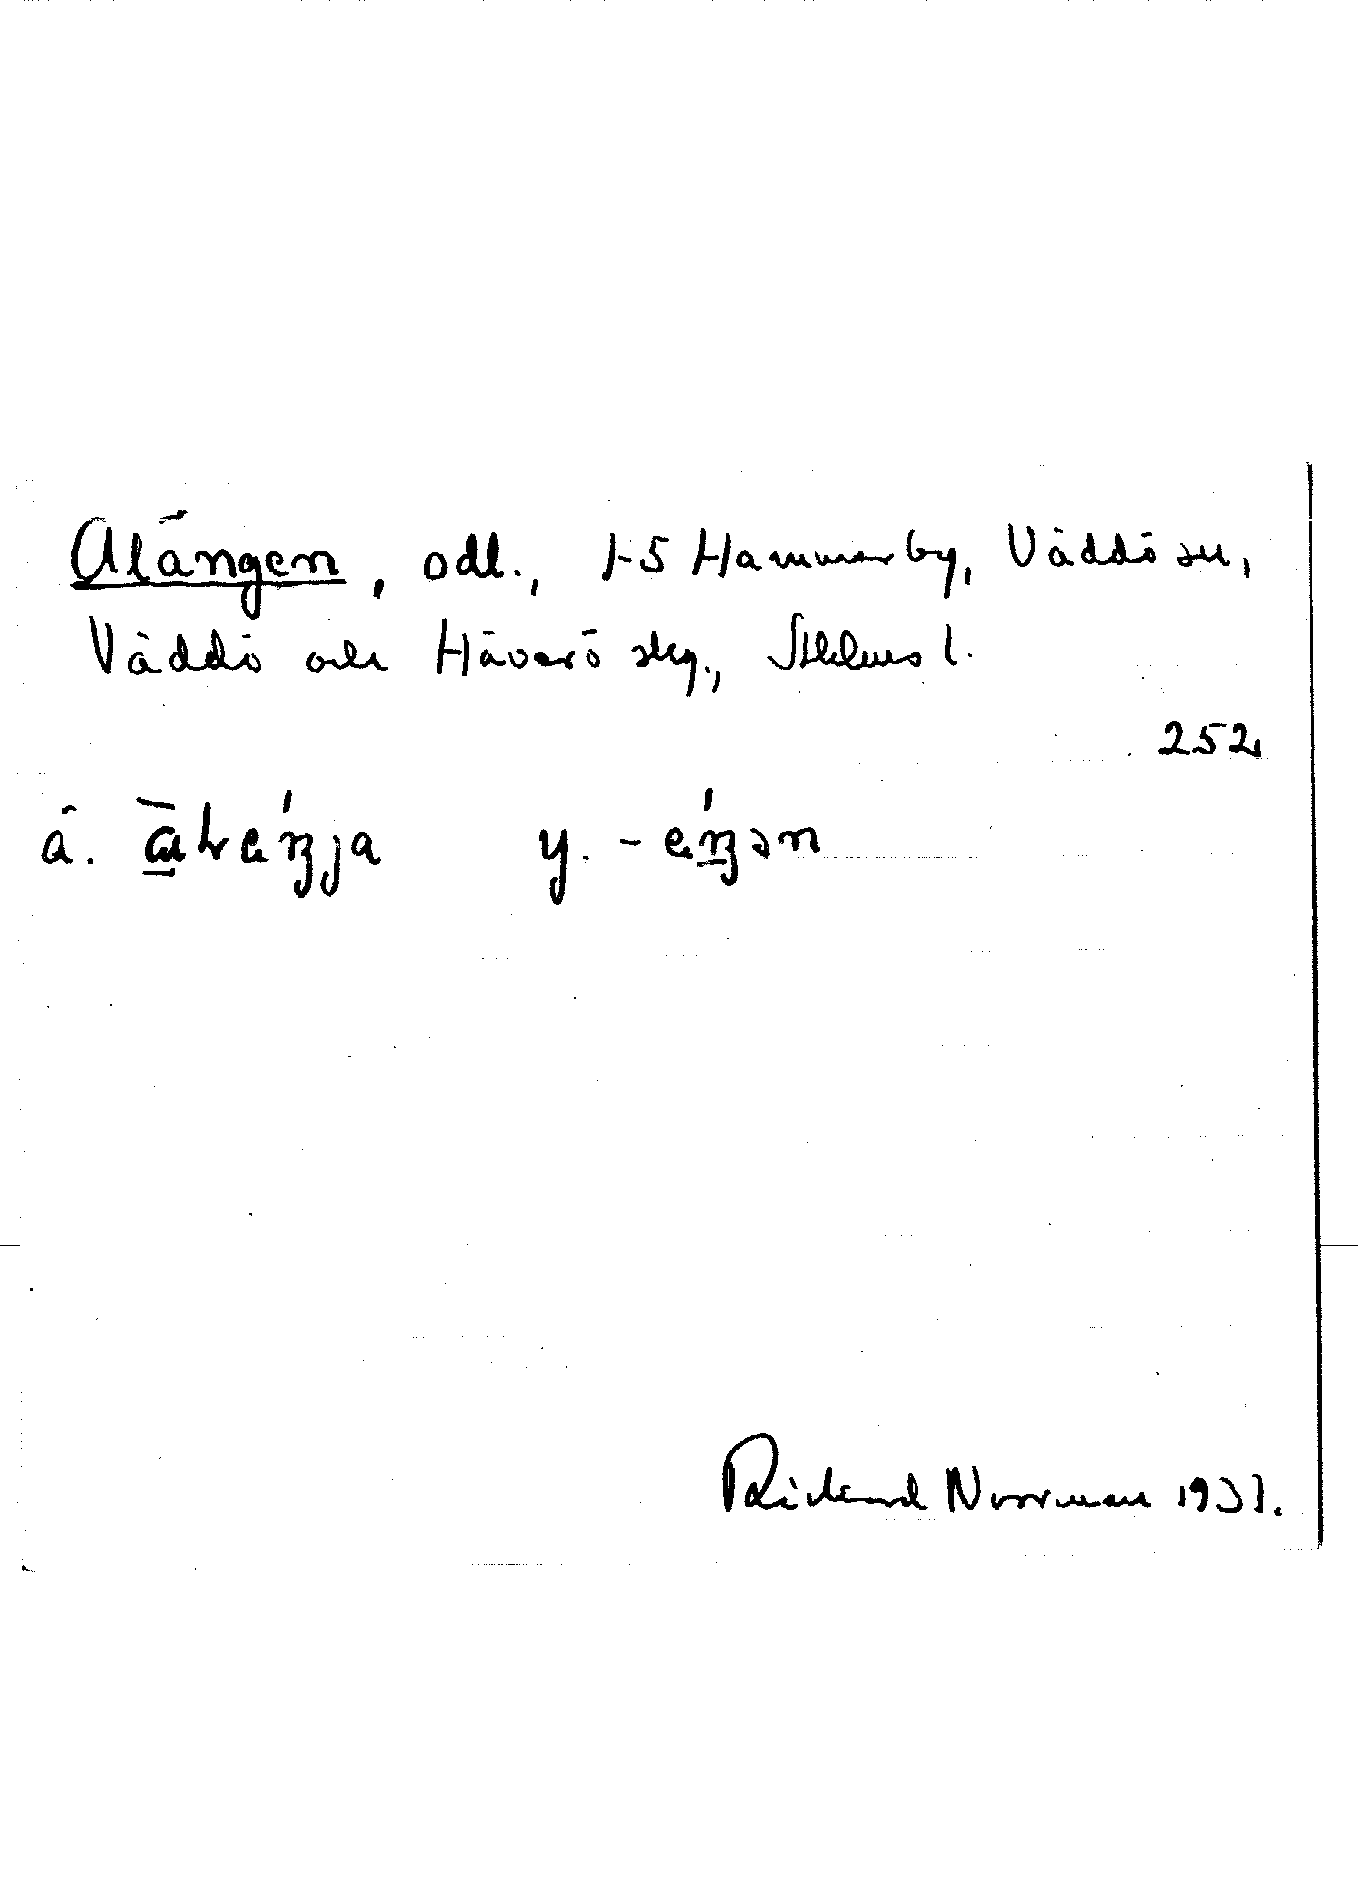 Alängen, odl., 1-5 Hammarby, Väddö sn,
Väddö och Häverö skg., Sthlms l.
252
ä. y.
Rickard Norrman 1937.